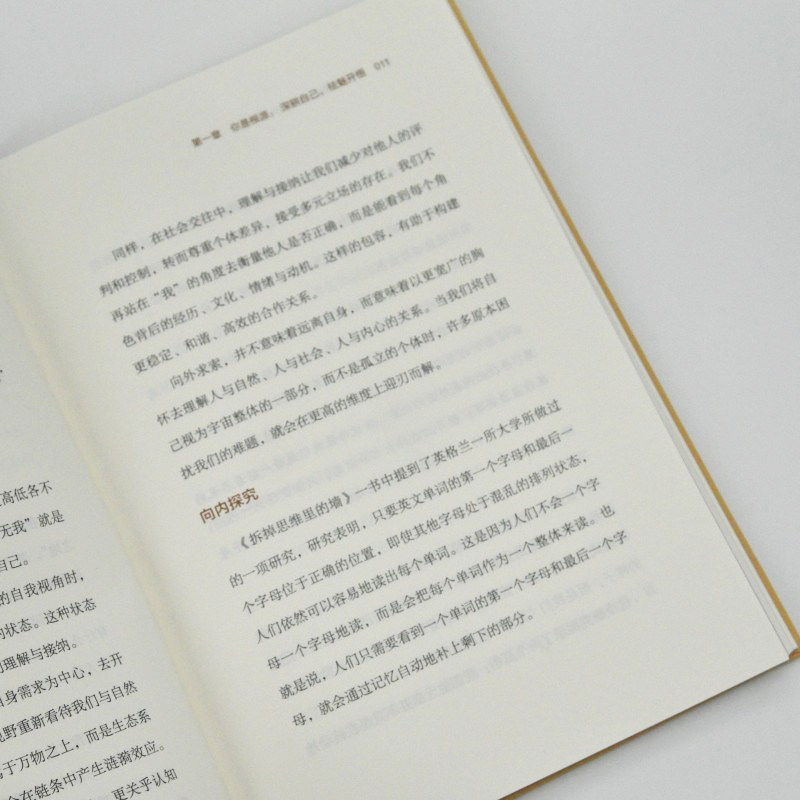 高低各不
无我”就是
自己。
的自我视角时，
的状态。这种状态
理解与接纳。
身需求为中心，去开
野重新看待我们与自然
于万物之上，而是生态系
在链条中产生涟漪效应。
更关乎认知
第一章 你是根源：深耕自己，祛魅开悟 011
同样，在社会交往中，理解与接纳让我们减少对他人的评
判和控制，转而尊重个体差异，接受多元立场的存在。我们不
再站在“我”的角度去衡量他人是否正确，而是能看到每个角
色背后的经历、文化、情绪与动机。这样的包容，有助于构建
更稳定、和谐、高效的合作关系。
向外求索，并不意味着远离自身，而意味着以更宽广的胸
怀去理解人与自然、人与社会、人与内心的关系。当我们将自
己视为宇宙整体的一部分，而不是孤立的个体时，许多原本困
扰我们的难题，就会在更高的维度上迎刃而解。
向内探究
《拆掉思维里的墙》一书中提到了英格兰一所大学所做过
的一项研究，研究表明，只要英文单词的第一个字母和最后一
个字母位于正确的位置，即使其他字母处于混乱的排列状态，
人们依然可以容易地读出每个单词。这是因为人们不会一个字
母一个字母地读，而是会把每个单词作为一个整体来读。也
就是说，人们只需要看到一个单词的第一个字母和最后一个字
母，就会通过记忆自动地补上剩下的部分。